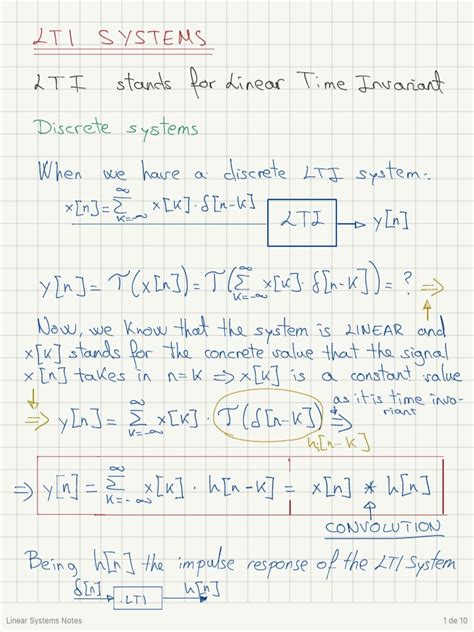 LTI SYSTEMS
LTI stands for Linear Time Invariant
Discrete systems
When we have a discrete LTI system:
x[n]=∑_{k=-∞}^{∞} x[k]·δ[n-k] LTI → y[n]
y[n] = T(x[n]) = T(∑_{k=-∞}^{∞} x[k]·δ[n-k]) = ? ⇒
Now, we know that the system is LINEAR and
x[k] stands for the concrete value that the signal
x[n] takes in n=k ⇒ x[k] is a constant value
⇒ y[n] = ∑_{k=-∞}^{∞} x[k] · T(δ[n-k]) ⇒ as it is time inva-
riant
h[n-k]
⇒ y[n] = ∑_{k=-∞}^{∞} x[k] · h[n-k] = x[n] * h[n]
CONVOLUTION
Being h[n] the impulse response of the LTI System
δ[n] → LTI → h[n]
Linear Systems Notes 1 de 10